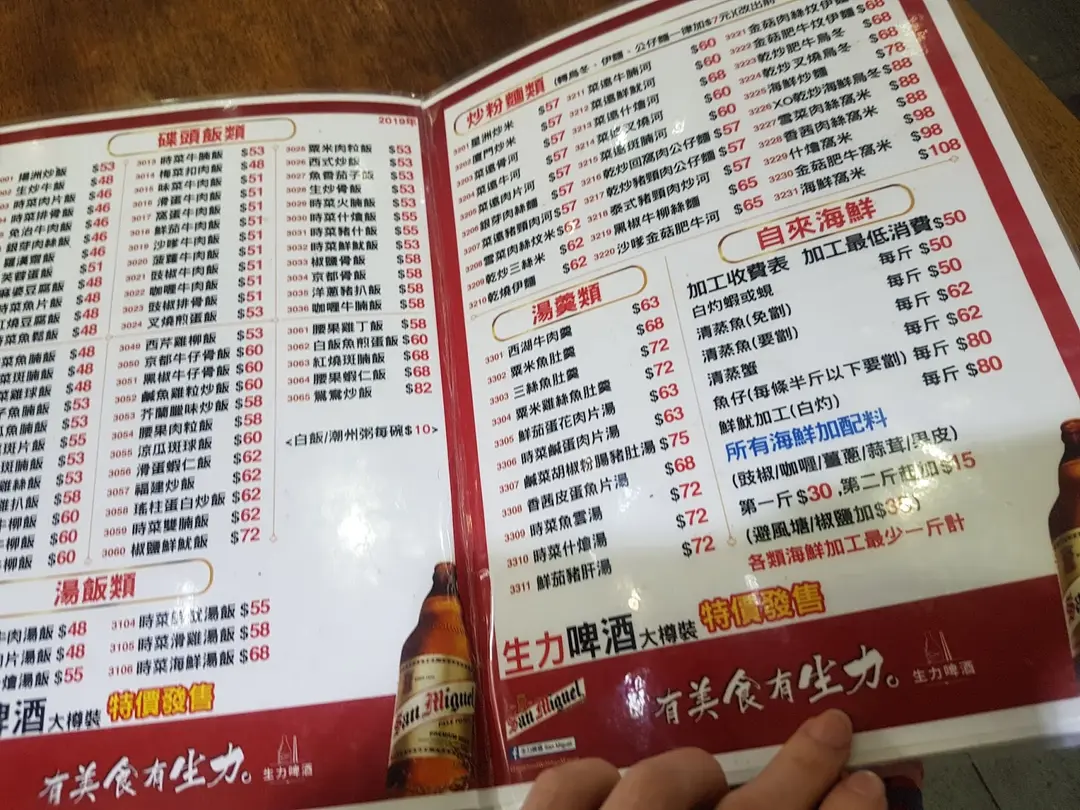 2019年
碟頭飯類
3001 揚洲炒飯 $53
3002 生炒牛飯 $48
時菜肉片飯 $46
時菜排骨飯 $46
免治牛肉飯 $46
銀芽肉絲飯 $46
羅漢齋飯 $51
芙蓉蛋飯 $48
麻婆豆腐飯 $48
時菜魚片飯 $48
紅燒豆腐飯 $48
時菜魚鬆飯 $48
菜魚腩飯 $48
菜斑腩飯 $48
菜雞球飯 $48
魚腩飯 $53
魚腩飯 $53
斑片飯 $55
斑腩飯 $53
雞絲飯 $53
雞扒飯 $58
牛柳飯 $60
牛柳飯 $60
牛仔飯 $60
3013 時菜牛腩飯 $53
3014 梅菜扣肉飯 $48
3015 味菜牛肉飯 $51
3016 滑蛋牛肉飯 $51
3017 窩蛋牛肉飯 $51
3018 鮮茄牛肉飯 $51
3019 沙嗲牛肉飯 $51
3020 菠蘿牛肉飯 $51
3021 豉椒牛肉飯 $51
3022 咖喱牛肉飯 $51
3023 豉椒排骨飯 $51
3024 叉燒煎蛋飯 $53
3049 西芹雞柳飯 $53
3050 京都牛仔骨飯 $60
3051 黑椒牛仔骨飯 $60
3052 鹹魚雞粒炒飯 $60
3053 芥蘭臘味炒飯 $58
3054 腰果肉粒飯 $58
3055 涼瓜斑球飯 $60
3056 滑蛋蝦仁飯 $62
3057 福建炒飯 $62
3058 瑤柱蛋白炒飯 $62
3059 時菜雙腩飯 $62
3060 椒鹽鮮魷飯 $72
3025 粟米肉粒飯 $53
3026 西式炒飯 $53
3027 魚香茄子飯 $53
3028 生炒骨飯 $53
3029 時菜火腩飯 $53
3030 時菜什燴飯 $55
3031 時菜豬什飯 $55
3032 時菜鮮魷飯 $53
3033 椒鹽骨飯 $58
3034 京都骨飯 $58
3035 洋蔥豬扒飯 $58
3036 咖喱牛腩飯 $58
3061 腰果雞丁飯 $58
3062 白飯魚煎蛋飯 $60
3063 紅燒斑腩飯 $68
3064 腰果蝦仁飯 $68
3065 鴛鴦炒飯 $82
<白飯/潮州粥每碗$10>
湯飯類
牛肉湯飯 $48
肉片湯飯 $48
什燴湯飯 $55
3104 時菜鮮魷湯飯 $55
3105 時菜滑雞湯飯 $58
3106 時菜海鮮湯飯 $68
啤酒 大樽裝 特價發售
有美食有生力。 生力啤酒
San Miguel
炒粉麵類 (轉烏冬、伊麵、公仔麵一律加$7元)
3201 星洲炒米 $57
3202 廈門炒米 $57
3203 菜遠骨河 $57
3204 菜遠牛河 $57
3205 菜遠肉片河 $57
3206 銀芽肉絲麵 $57
3207 菜遠豬頸肉河 $57
3208 雪菜肉絲炆米 $62
3209 乾炒三絲米 $62
3210 乾燒伊麵 $62
3211 菜遠牛腩河 $60
3212 菜遠鮮魷河 $60
3213 菜遠什燴河 $68
3214 菜遠叉燒河 $60
3215 菜遠斑腩河 $60
3216 乾炒回窩肉公仔麵 $57
3217 乾炒豬頸肉公仔麵 $57
3218 泰式豬頸肉炒河 $57
3219 黑椒牛柳絲麵 $65
3220 沙嗲金菇肥牛河 $65
3221 金菇肉絲炆伊麵 $68
3222 金菇肥牛炆伊麵 $68
3223 乾炒肥牛烏冬 $68
3224 乾炒叉燒烏冬 $68
3225 海鮮炒麵 $78
3226 XO乾炒海鮮烏冬 $88
3227 雪菜肉絲窩米 $88
3228 香茜肉絲窩米 $88
3229 什燴窩米 $98
3230 金菇肥牛窩米 $98
3231 海鮮窩米 $108
湯羹類
3301 西湖牛肉羹 $63
3302 粟米魚肚羹 $68
3303 三絲魚肚羹 $72
3304 粟米雞絲魚肚羹 $72
3305 鮮茄蛋花肉片湯 $63
3306 時菜鹹蛋肉片湯 $63
3307 鹹菜胡椒粉腸豬肚湯 $75
3308 香茜皮蛋魚片湯 $68
3309 時菜魚雲湯 $72
3310 時菜什燴湯 $72
3311 鮮茄豬肝湯 $72
自來海鮮
加工收費表 加工最低消費$50
白灼蝦或蜆 每斤 $50
清蒸魚(免劏) 每斤 $50
清蒸魚(要劏) 每斤 $62
清蒸蟹 每斤 $62
魚仔(每條半斤以下要劏) 每斤 $80
鮮魷加工(白灼) 每斤 $80
所有海鮮加配料
(豉椒/咖喱/薑蔥/蒜茸/果皮)
第一斤$30 ,第二斤起加$15
(避風塘/椒鹽加$35)
各類海鮮加工最少一斤計
生力啤酒 大樽裝 特價發售
San Miguel
有美食有生力。 生力啤酒
生力啤酒 San Miguel